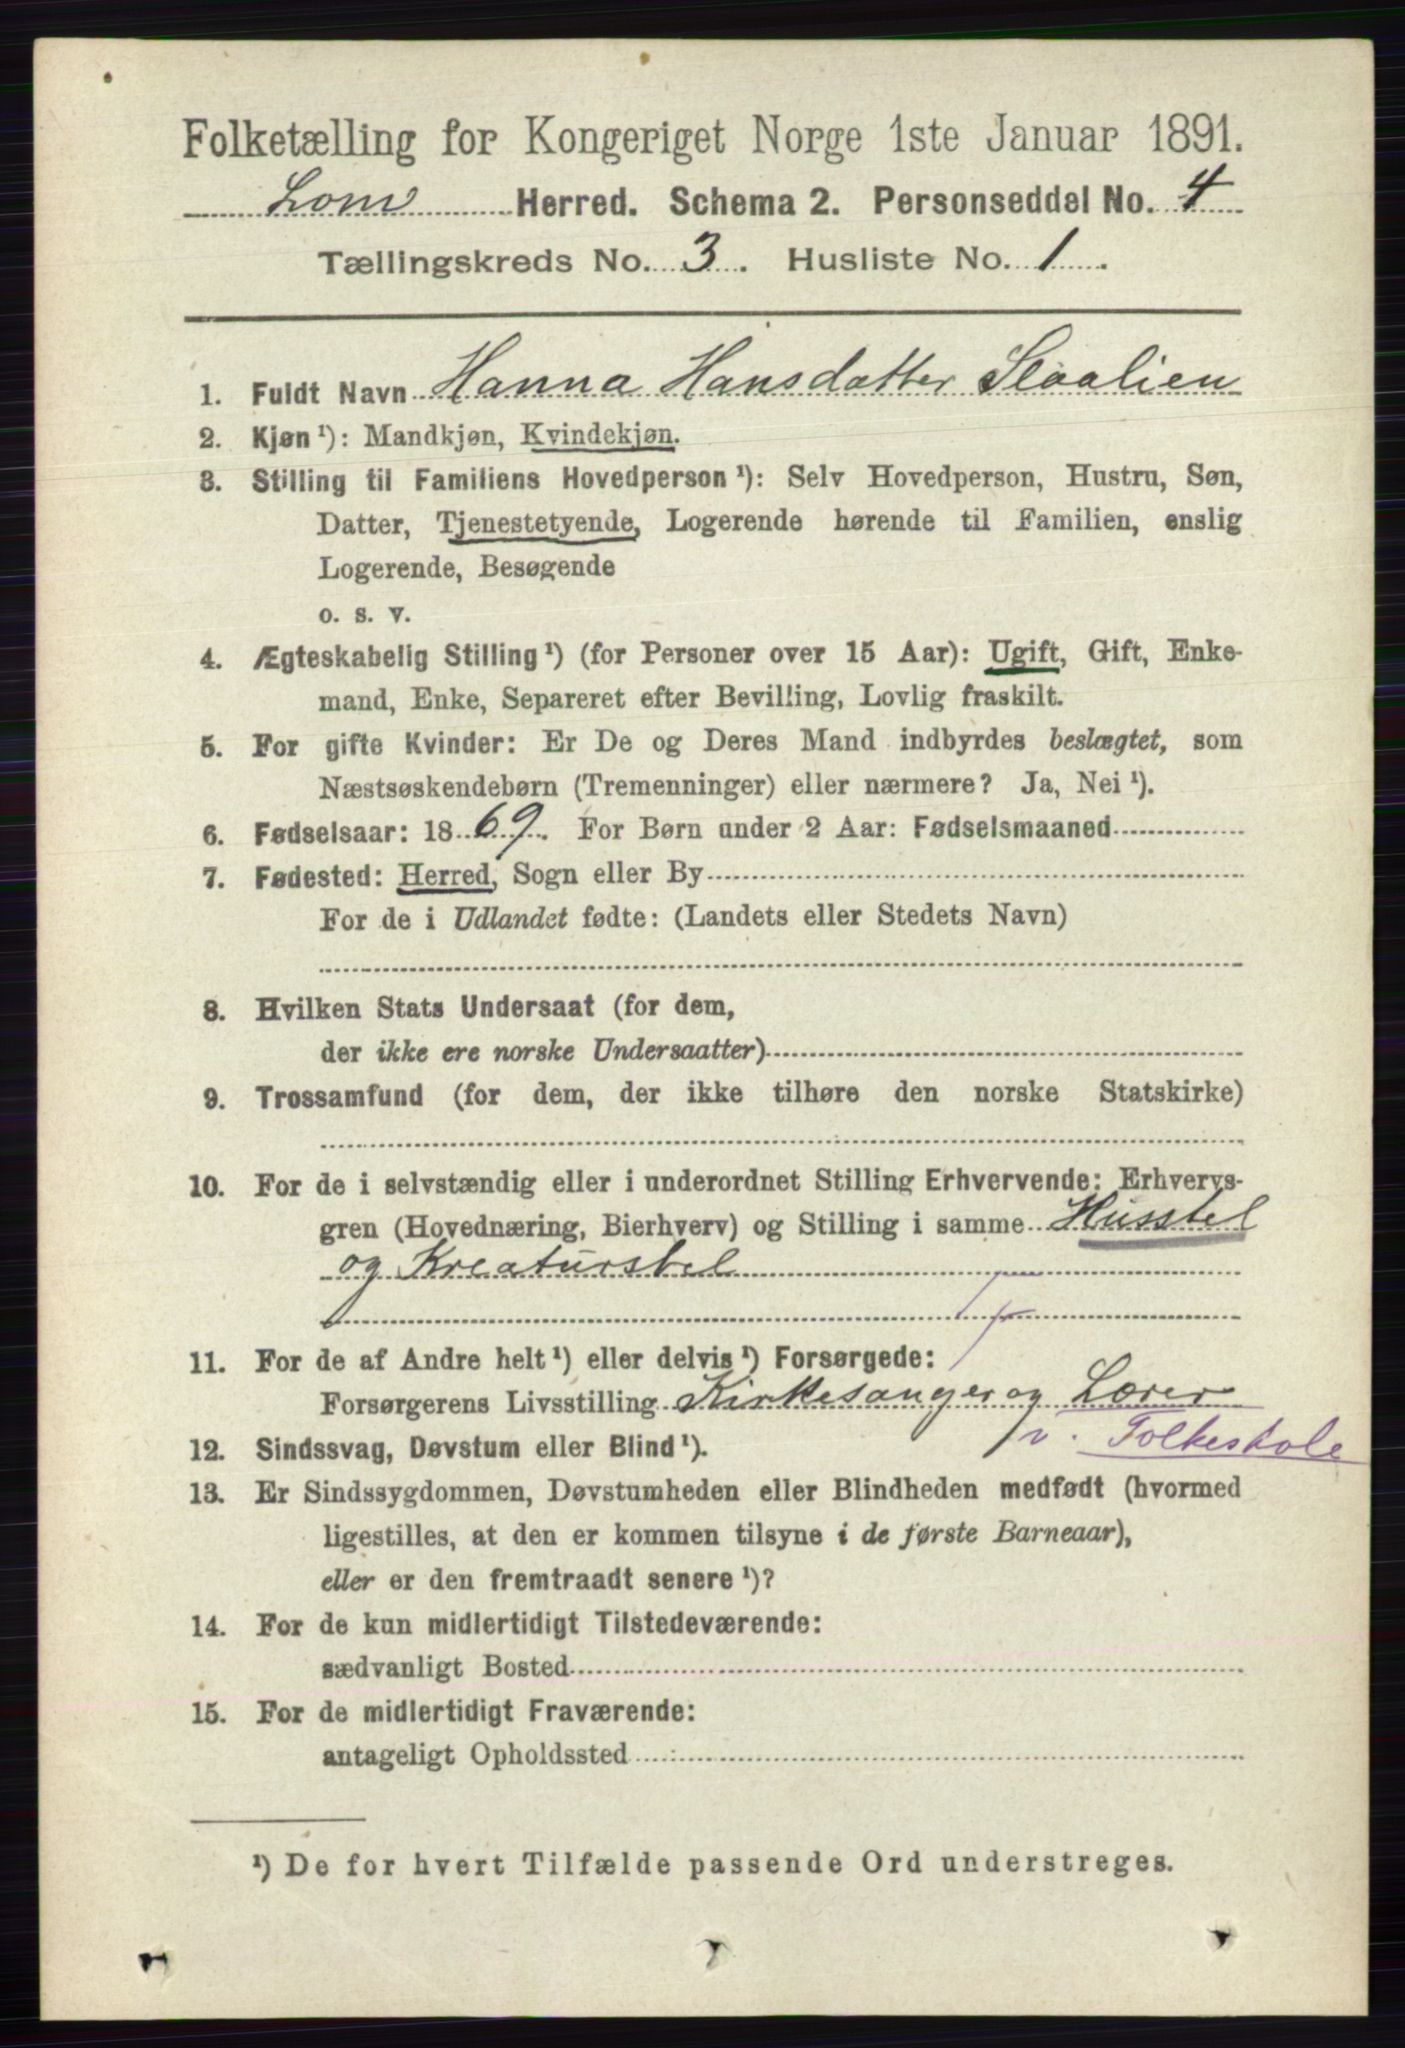 Folketælling for Kongeriget Norge 1ste Januar 1891.
Lom Herred. Schema 2. Personseddel No. 4
Tællingskreds No. 3. Husliste No. 1.
1. Fuldt Navn Hanna Hansdatter Slaalien
2. Kjøn¹): Mandkjøn, Kvindekjøn.
3. Stilling til Familiens Hovedperson¹): Selv Hovedperson, Hustru, Søn,
Datter, Tjenestetyende, Logerende hørende til Familien, enslig
Logerende, Besøgende
o. s. v.
4. Ægteskabelig Stilling¹) (for Personer over 15 Aar): Ugift, Gift, Enke-
mand, Enke, Separeret efter Bevilling, Lovlig fraskilt.
5. For gifte Kvinder: Er De og Deres Mand indbyrdes beslægtet, som
Næstsøskendebørn (Tremenninger) eller nærmere? Ja, Nei¹).
6. Fødselsaar: 1869. For Børn under 2 Aar: Fødselsmaaned
7. Fødested: Herred, Sogn eller By
For de i Udlandet fødte: (Landets eller Stedets Navn)
8. Hvilken Stats Undersaat (for dem,
der ikke ere norske Undersaatter)
9. Trossamfund (for dem, der ikke tilhøre den norske Statskirke)
10. For de i selvstændig eller i underordnet Stilling Erhvervende: Erhvervs-
gren (Hovednæring, Bierhverv) og Stilling i samme Husstel
og Kreaturstel
11. For de af Andre helt¹) eller delvis¹) Forsørgede:
Forsørgerens Livsstilling Kirkesanger og Lærer
v. Folkeskole
12. Sindssvag, Døvstum eller Blind¹).
13. Er Sindssygdommen, Døvstumheden eller Blindheden medfødt (hvormed
ligestilles, at den er kommen tilsyne i de første Barneaar),
eller er den fremtraadt senere¹)?
14. For de kun midlertidigt Tilstedeværende:
sædvanligt Bosted
15. For de midlertidigt Fraværende:
antageligt Opholdssted
¹) De for hvert Tilfælde passende Ord understreges.